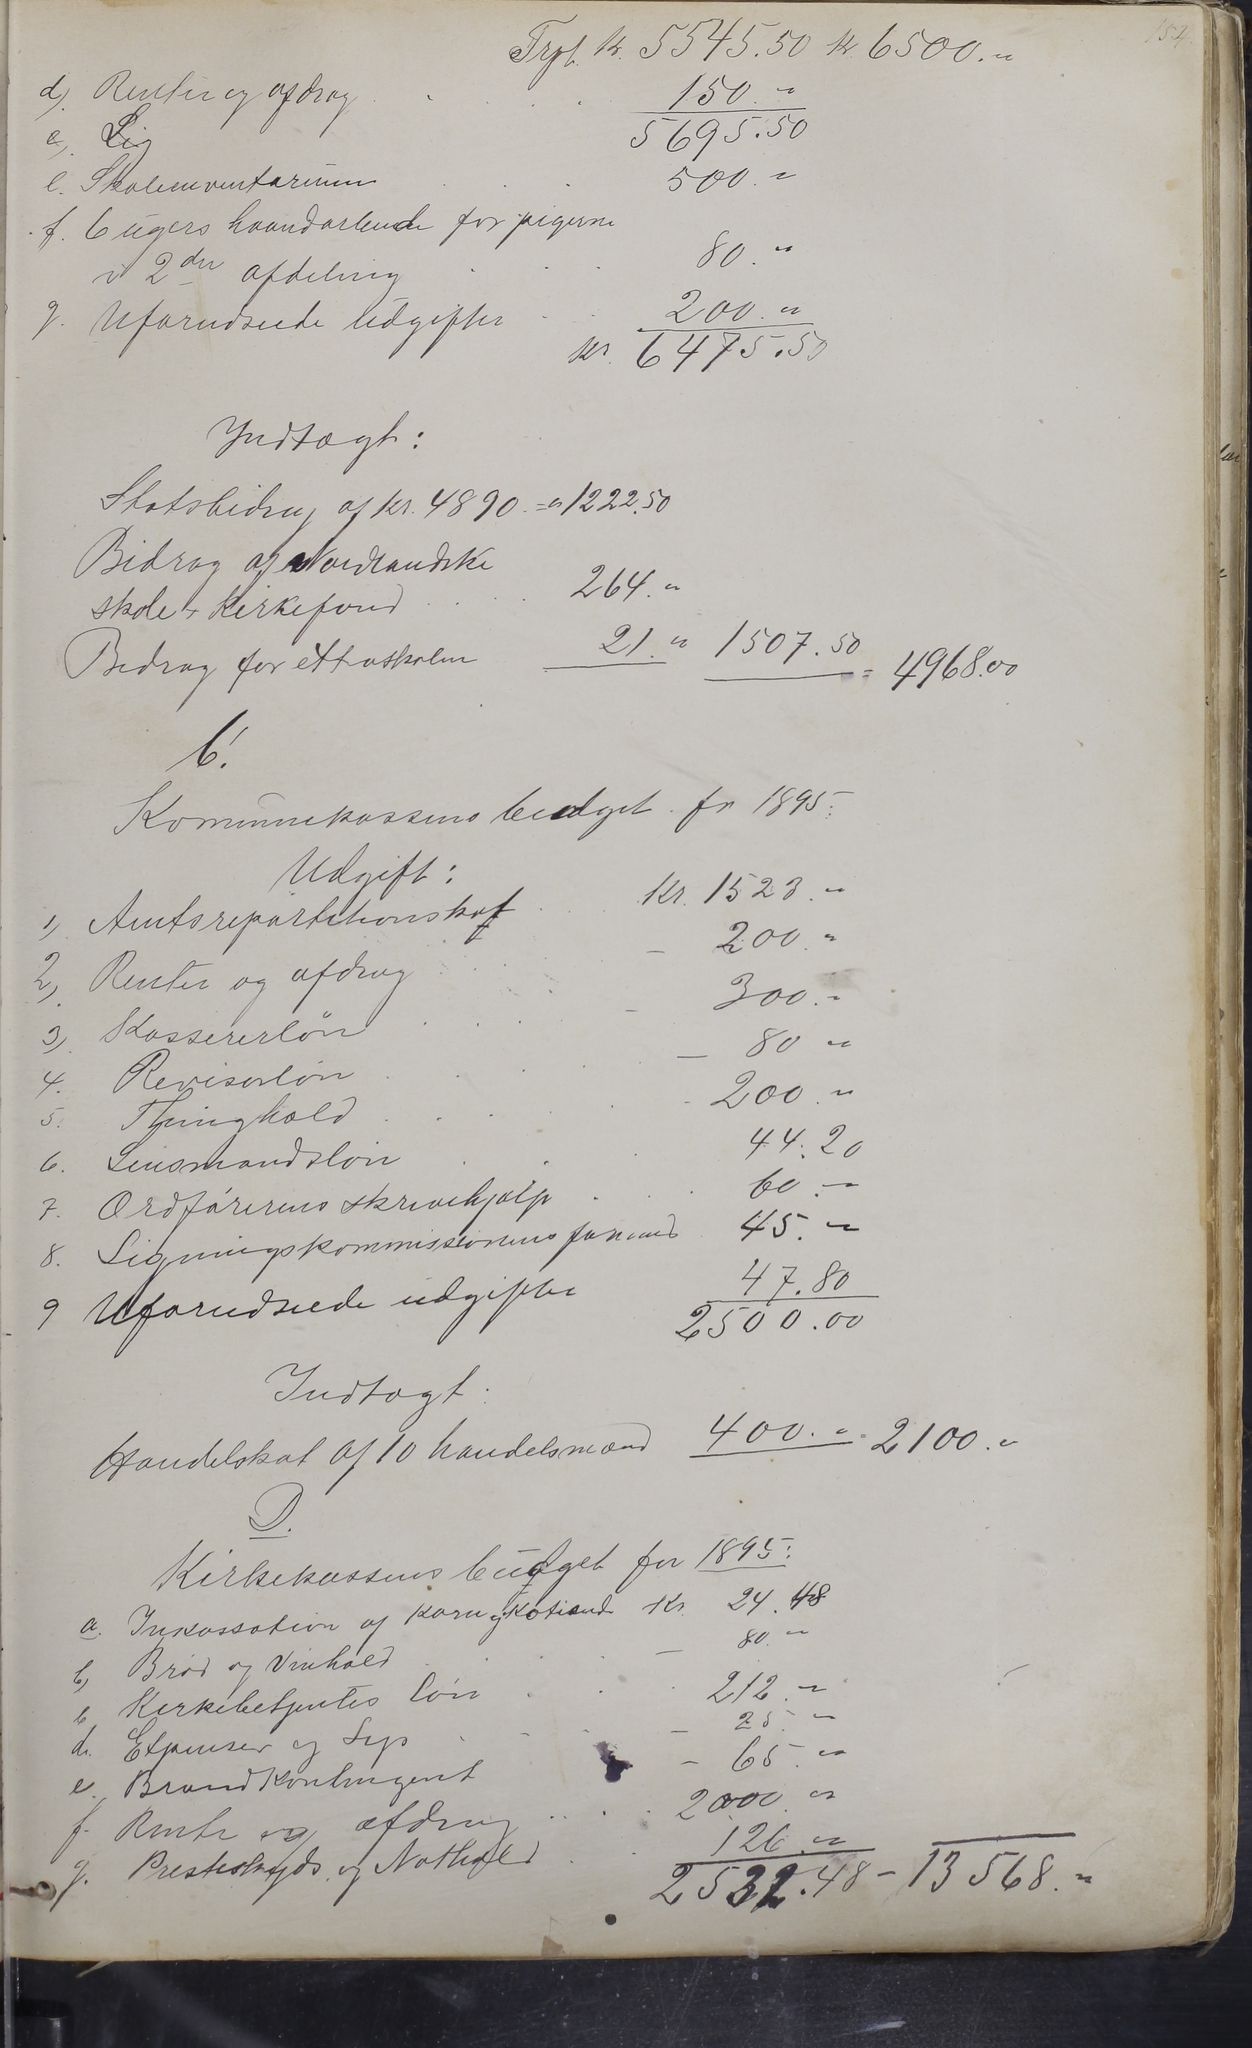 154.
Trpt. kr. 5545.50 kr 6500.„
d). Renter og afdrag . . . . 150.„
5695.50
e). Lig
e. Skoleinventarium . . . 500.„
f. 6 ugers haandarbeide for pigerne
i 2den afdeling . . . 80.„
g. Uforudseede Udgifter . . 200.„
kr. 6475.50
Indtægt:
Statsbidrag af kr. 4890.= „ 1222.50
Bidrag af Nordlandske
skole & Kirkefond . . . 264.„
Bidrag for extraskolen 21.„ 1507.50 = 4968.00
C.
Kommunekassens budget for 1895:
Udgift:
1). Amtsrepartitionskat . . kr. 1523.„
2). Renter og afdrag . . - 200.„
3). Kassererløn . . . - 300.„
4. Revisorløn . . . — 80 „
5. Thinghold . . . - 200.„
6. Lensmandsløn . . . 44.20
7. Ordførerens skrivehjælp . . . 60.—
8. Ligningskommissionens formand 45.„
9 Uforudseede udgifter 47.80
2500.00
Indtægt:
Handelskat af 10 handelsmænd 400.„ = 2100.„
D.
Kirkekassens budget for 1895:
a. Inkassation af korn og kotiende Kr. 24.48
b, Brød og Vinhold . . . — 80.„
c Kirkebetjentes løn . . . 212.„
d. Expenser og Lys . . . - 25.„
e. Brandkontingent - 65.„
f. Rente og afdrag . . . . 2000.„
g. Presteskyds og Nathold . . 126.„
2532.48 - 13568.„